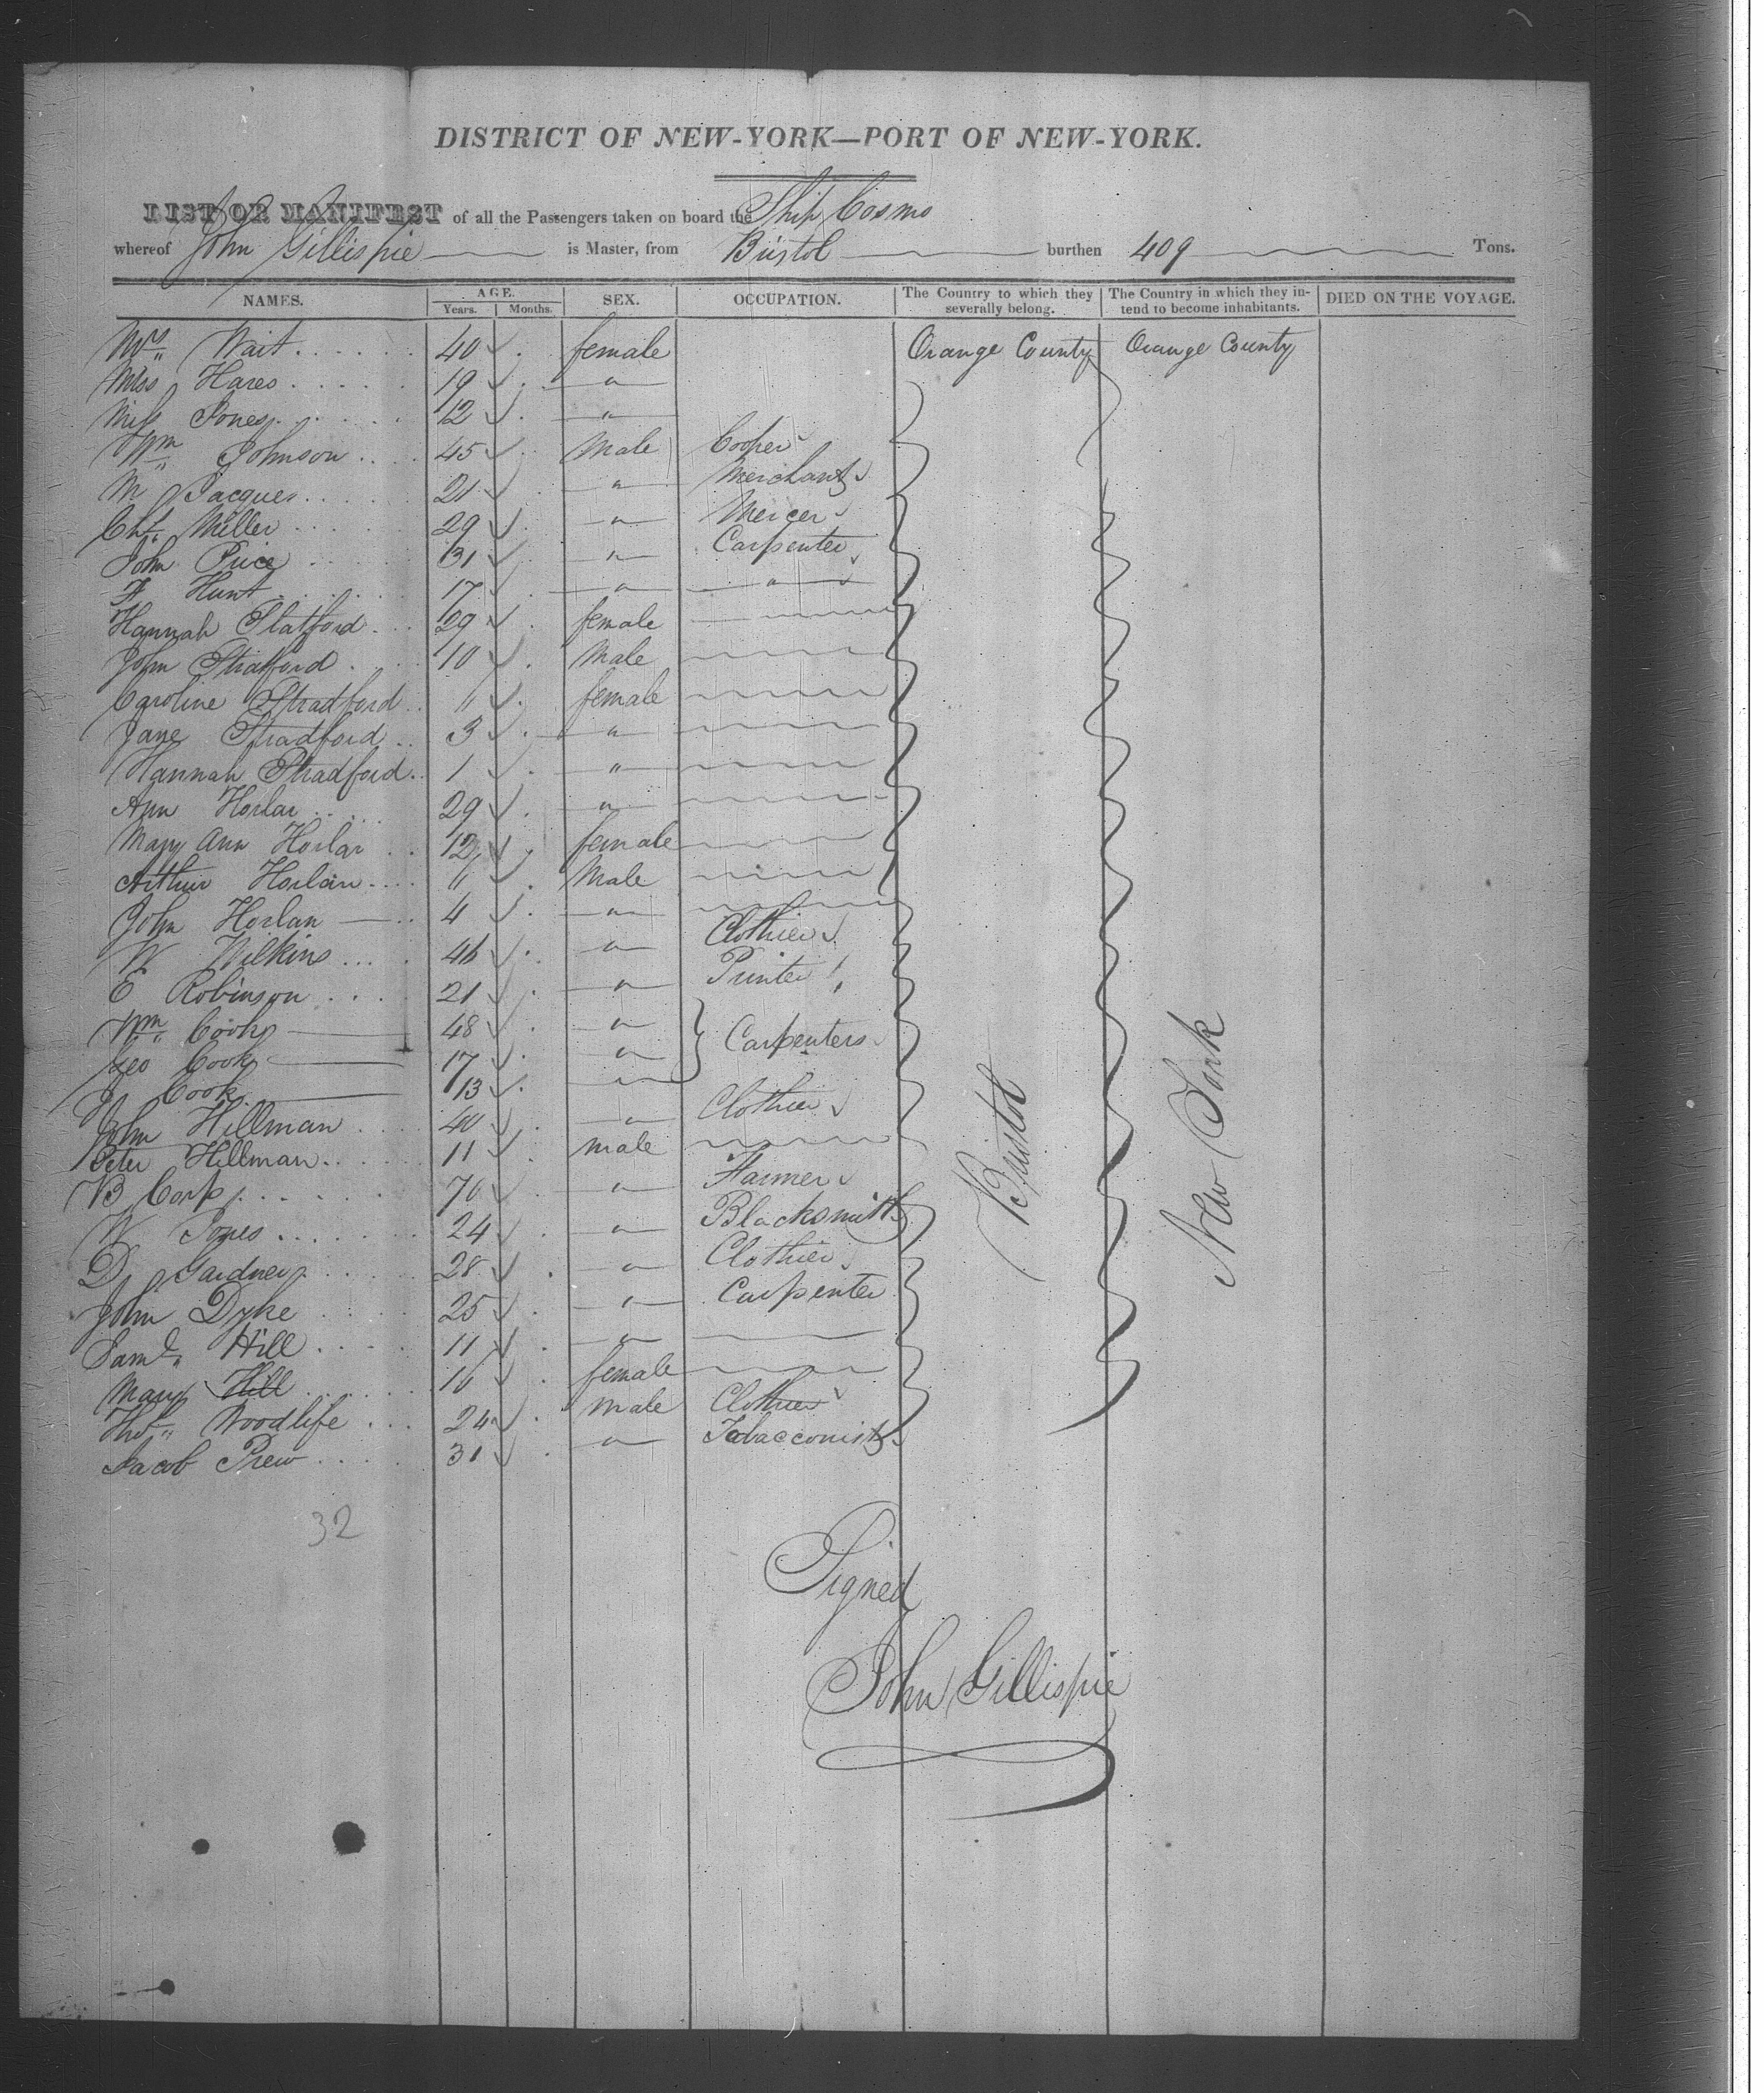 DISTRICT OF NEW-YORK—PORT OF NEW-YORK.
LIST OR MANIFEST of all the Passengers taken on board the Ship Cosmo
whereof John Gillispie is Master, from Bristol burthen 409 Tons.
NAMES. AGE. Years. Months. SEX. OCCUPATION. The Country to which they severally belong. The Country in which they intend to become inhabitants. DIED ON THE VOYAGE.
Mrs Wait 40 female Orange County Orange County
Miss Hares 19 "
Miss Jones 12 "
Wm Johnson 45 Male Cooper
M Jacques 21 " Merchant
Chs Miller 29 " Mercer
John Price 31 " Carpenter
F Hunt 17 " "
Hannah Statford 29 female
John Stratford 10 Male
Caroline Stradford female
Jane Stradford 3 "
Hannah Stradford 1 "
Ann Horlar 29 "
Mary Ann Horlar 12 female
Arthur Horlan Male
John Horlan 4 "
W Wilkins 46 " Clothier
E Robinson 21 " Printer
Wm Cook 48 "
Geo Cook 17 " Carpenters
J Cook 13 "
John Hillman 40 " Clothier
Peter Hillman 11 male
B Corp 70 " Farmer
W Jones 24 " Blacksmith
D Gardner 28 " Clothier
John Dyke 25 " Carpenter
Saml Hill 11 "
Mary Hill 16 female
Thos Woodlife 24 male Clothier
Jacob Prew 31 " Tobacconist
Bristol
New York
32
Signed
John Gillispie